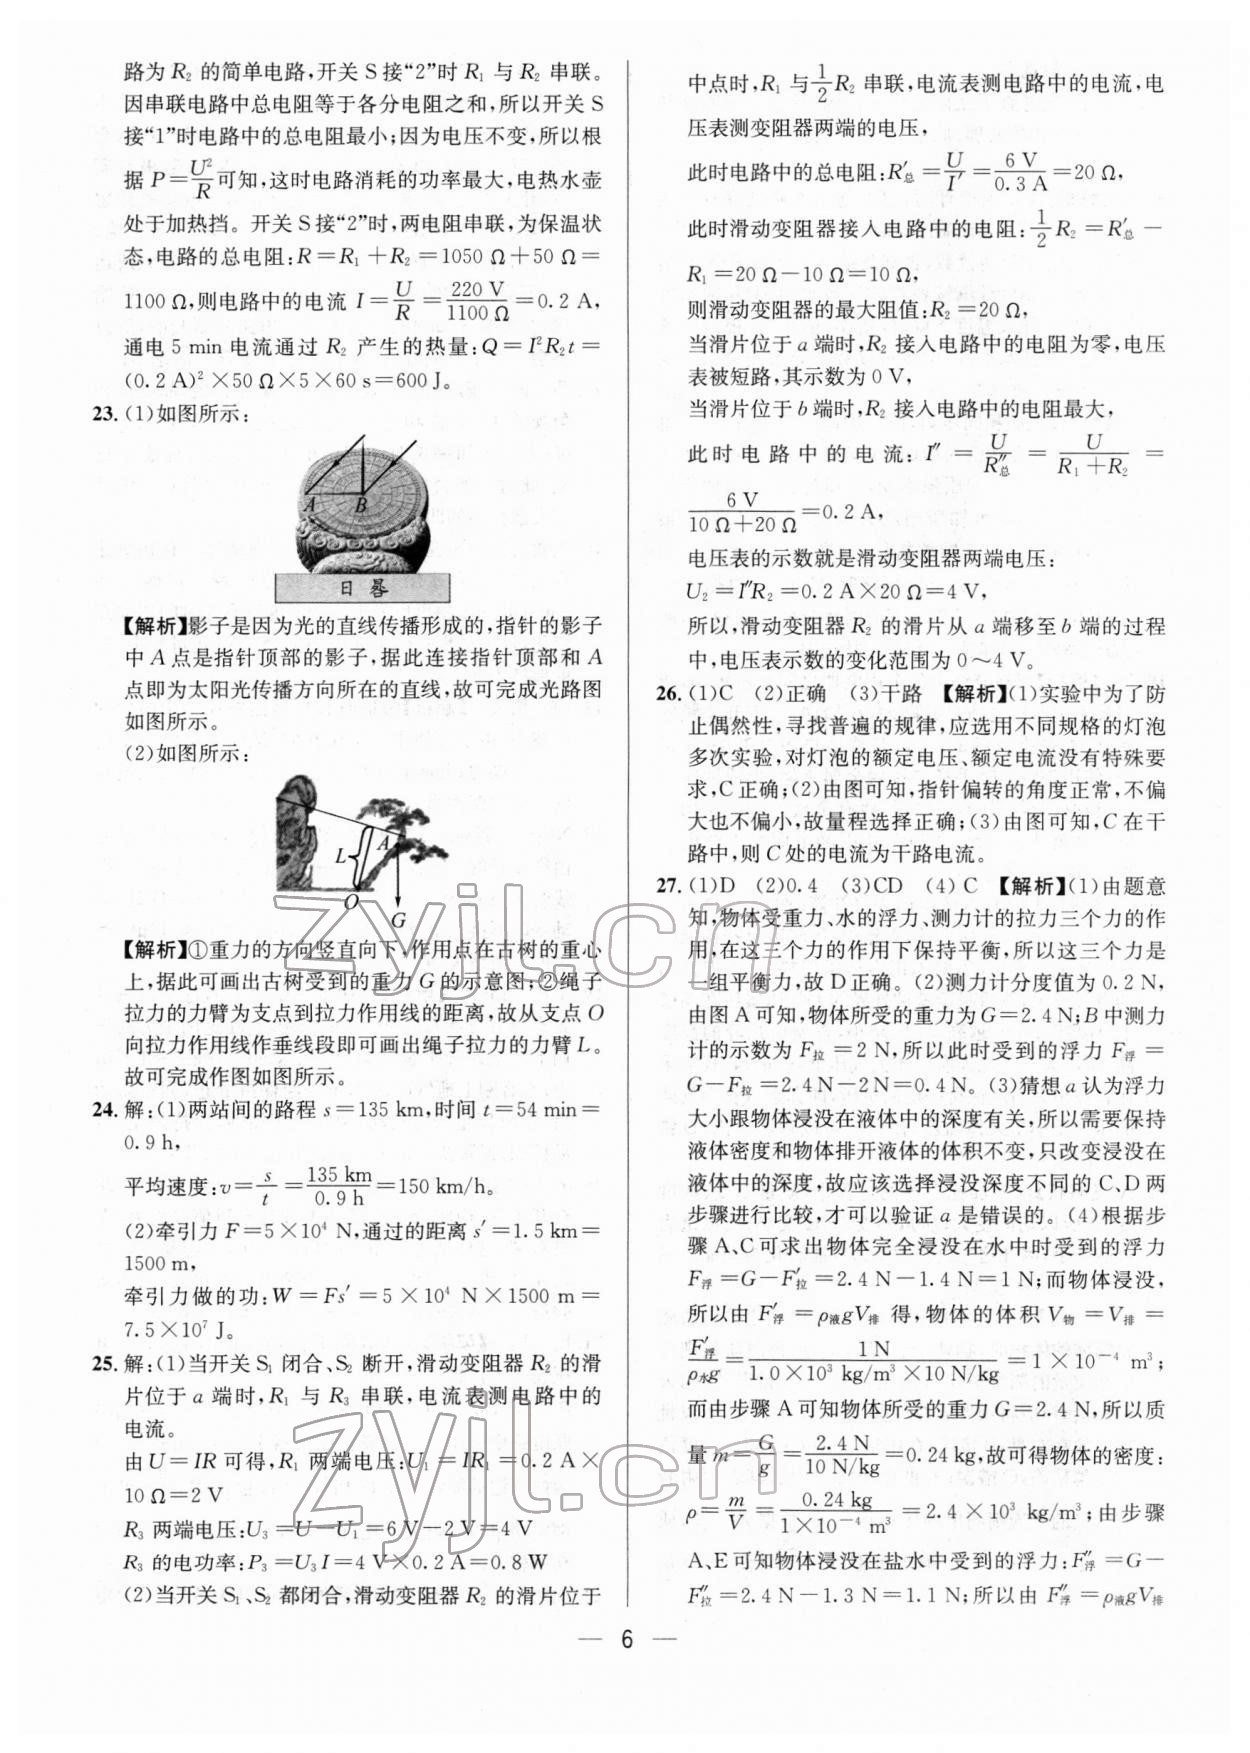 路为 R₂ 的简单电路,开关 S 接“2”时 R₁ 与 R₂ 串联。
因串联电路中总电阻等于各分电阻之和,所以开关 S
接“1”时电路中的总电阻最小;因为电压不变,所以根
据 P=U²/R可知,这时电路消耗的功率最大,电热水壶
处于加热挡。开关 S 接“2”时,两电阻串联,为保温状
态,电路的总电阻:R=R₁+R₂=1050 Ω+50 Ω=
1100 Ω,则电路中的电流 I=U/R=220 V/1100 Ω=0.2 A,
通电 5 min 电流通过 R₂ 产生的热量:Q=I²R₂t=
(0.2 A)²×50 Ω×5×60 s=600 J。
23. (1)如图所示:
A B
日晷
【解析】影子是因为光的直线传播形成的,指针的影子
中 A 点是指针顶部的影子,据此连接指针顶部和 A
点即为太阳光传播方向所在的直线,故可完成光路图
如图所示。
(2)如图所示:
L A
O G
【解析】①重力的方向竖直向下,作用点在古树的重心
上,据此可画出古树受到的重力 G 的示意图;②绳子
拉力的力臂为支点到拉力作用线的距离,故从支点 O
向拉力作用线作垂线段即可画出绳子拉力的力臂 L。
故可完成作图如图所示。
24. 解:(1)两站间的路程 s=135 km,时间 t=54 min=
0.9 h,
平均速度:v=s/t=135 km/0.9 h=150 km/h。
(2)牵引力 F=5×10⁴ N,通过的距离 s′=1.5 km=
1500 m,
牵引力做的功:W=Fs′=5×10⁴ N×1500 m=
7.5×10⁷ J。
25. 解:(1)当开关 S₁ 闭合、S₂ 断开,滑动变阻器 R₂ 的滑
片位于 a 端时,R₁ 与 R₃ 串联,电流表测电路中的
电流。
由 U=IR 可得,R₁ 两端电压:U₁=IR₁=0.2 A×
10 Ω=2 V
R₃ 两端电压:U₃=U-U₁=6 V-2 V=4 V
R₃ 的电功率:P₃=U₃I=4 V×0.2 A=0.8 W
(2)当开关 S₁、S₂ 都闭合,滑动变阻器 R₂ 的滑片位于
中点时,R₁ 与1/2R₂ 串联,电流表测电路中的电流,电
压表测变阻器两端的电压,
此时电路中的总电阻:R′总=U/I′=6 V/0.3 A=20 Ω,
此时滑动变阻器接入电路中的电阻:1/2R₂=R′总-
R₁=20 Ω-10 Ω=10 Ω,
则滑动变阻器的最大阻值:R₂=20 Ω,
当滑片位于 a 端时,R₂ 接入电路中的电阻为零,电压
表被短路,其示数为 0 V,
当滑片位于 b 端时,R₂ 接入电路中的电阻最大,
此时电路中的电流:I″=U/R″总=U/(R₁+R₂)=
6 V/(10 Ω+20 Ω)=0.2 A,
电压表的示数就是滑动变阻器两端电压:
U₂=I″R₂=0.2 A×20 Ω=4 V,
所以,滑动变阻器 R₂ 的滑片从 a 端移至 b 端的过程
中,电压表示数的变化范围为 0~4 V。
26. (1)C (2)正确 (3)干路 【解析】(1)实验中为了防
止偶然性,寻找普遍的规律,应选用不同规格的灯泡
多次实验,对灯泡的额定电压、额定电流没有特殊要
求,C正确;(2)由图可知,指针偏转的角度正常,不偏
大也不偏小,故量程选择正确;(3)由图可知,C 在干
路中,则 C 处的电流为干路电流。
27. (1)D (2)0.4 (3)CD (4)C 【解析】(1)由题意
知,物体受重力、水的浮力、测力计的拉力三个力的作
用,在这三个力的作用下保持平衡,所以这三个力是
一组平衡力,故 D 正确。(2)测力计分度值为 0.2 N,
由图 A 可知,物体所受的重力为 G=2.4 N;B 中测力
计的示数为 F拉=2 N,所以此时受到的浮力 F浮=
G-F拉=2.4 N-2 N=0.4 N。(3)猜想 a 认为浮力
大小跟物体浸没在液体中的深度有关,所以需要保持
液体密度和物体排开液体的体积不变,只改变浸没在
液体中的深度,故应该选择浸没深度不同的 C、D 两
步骤进行比较,才可以验证 a 是错误的。(4)根据步
骤 A、C 可求出物体完全浸没在水中时受到的浮力
F浮=G-F′拉=2.4 N-1.4 N=1 N;而物体浸没,
所以由 F′浮=ρ液gV排 得,物体的体积 V物=V排=
F′浮/ρ水g=1 N/(1.0×10³ kg/m³×10 N/kg)=1×10⁻⁴ m³;
而由步骤 A 可知物体所受的重力 G=2.4 N,所以质
量 m=G/g=2.4 N/10 N/kg=0.24 kg,故可得物体的密度:
ρ=m/V=0.24 kg/1×10⁻⁴ m³=2.4×10³ kg/m³;由步骤
A、E 可知物体浸没在盐水中受到的浮力:F″浮=G-
F″拉=2.4 N-1.3 N=1.1 N;所以由 F″浮=ρ液gV排
— 6 —
zyjl.cn
zyjl.cn